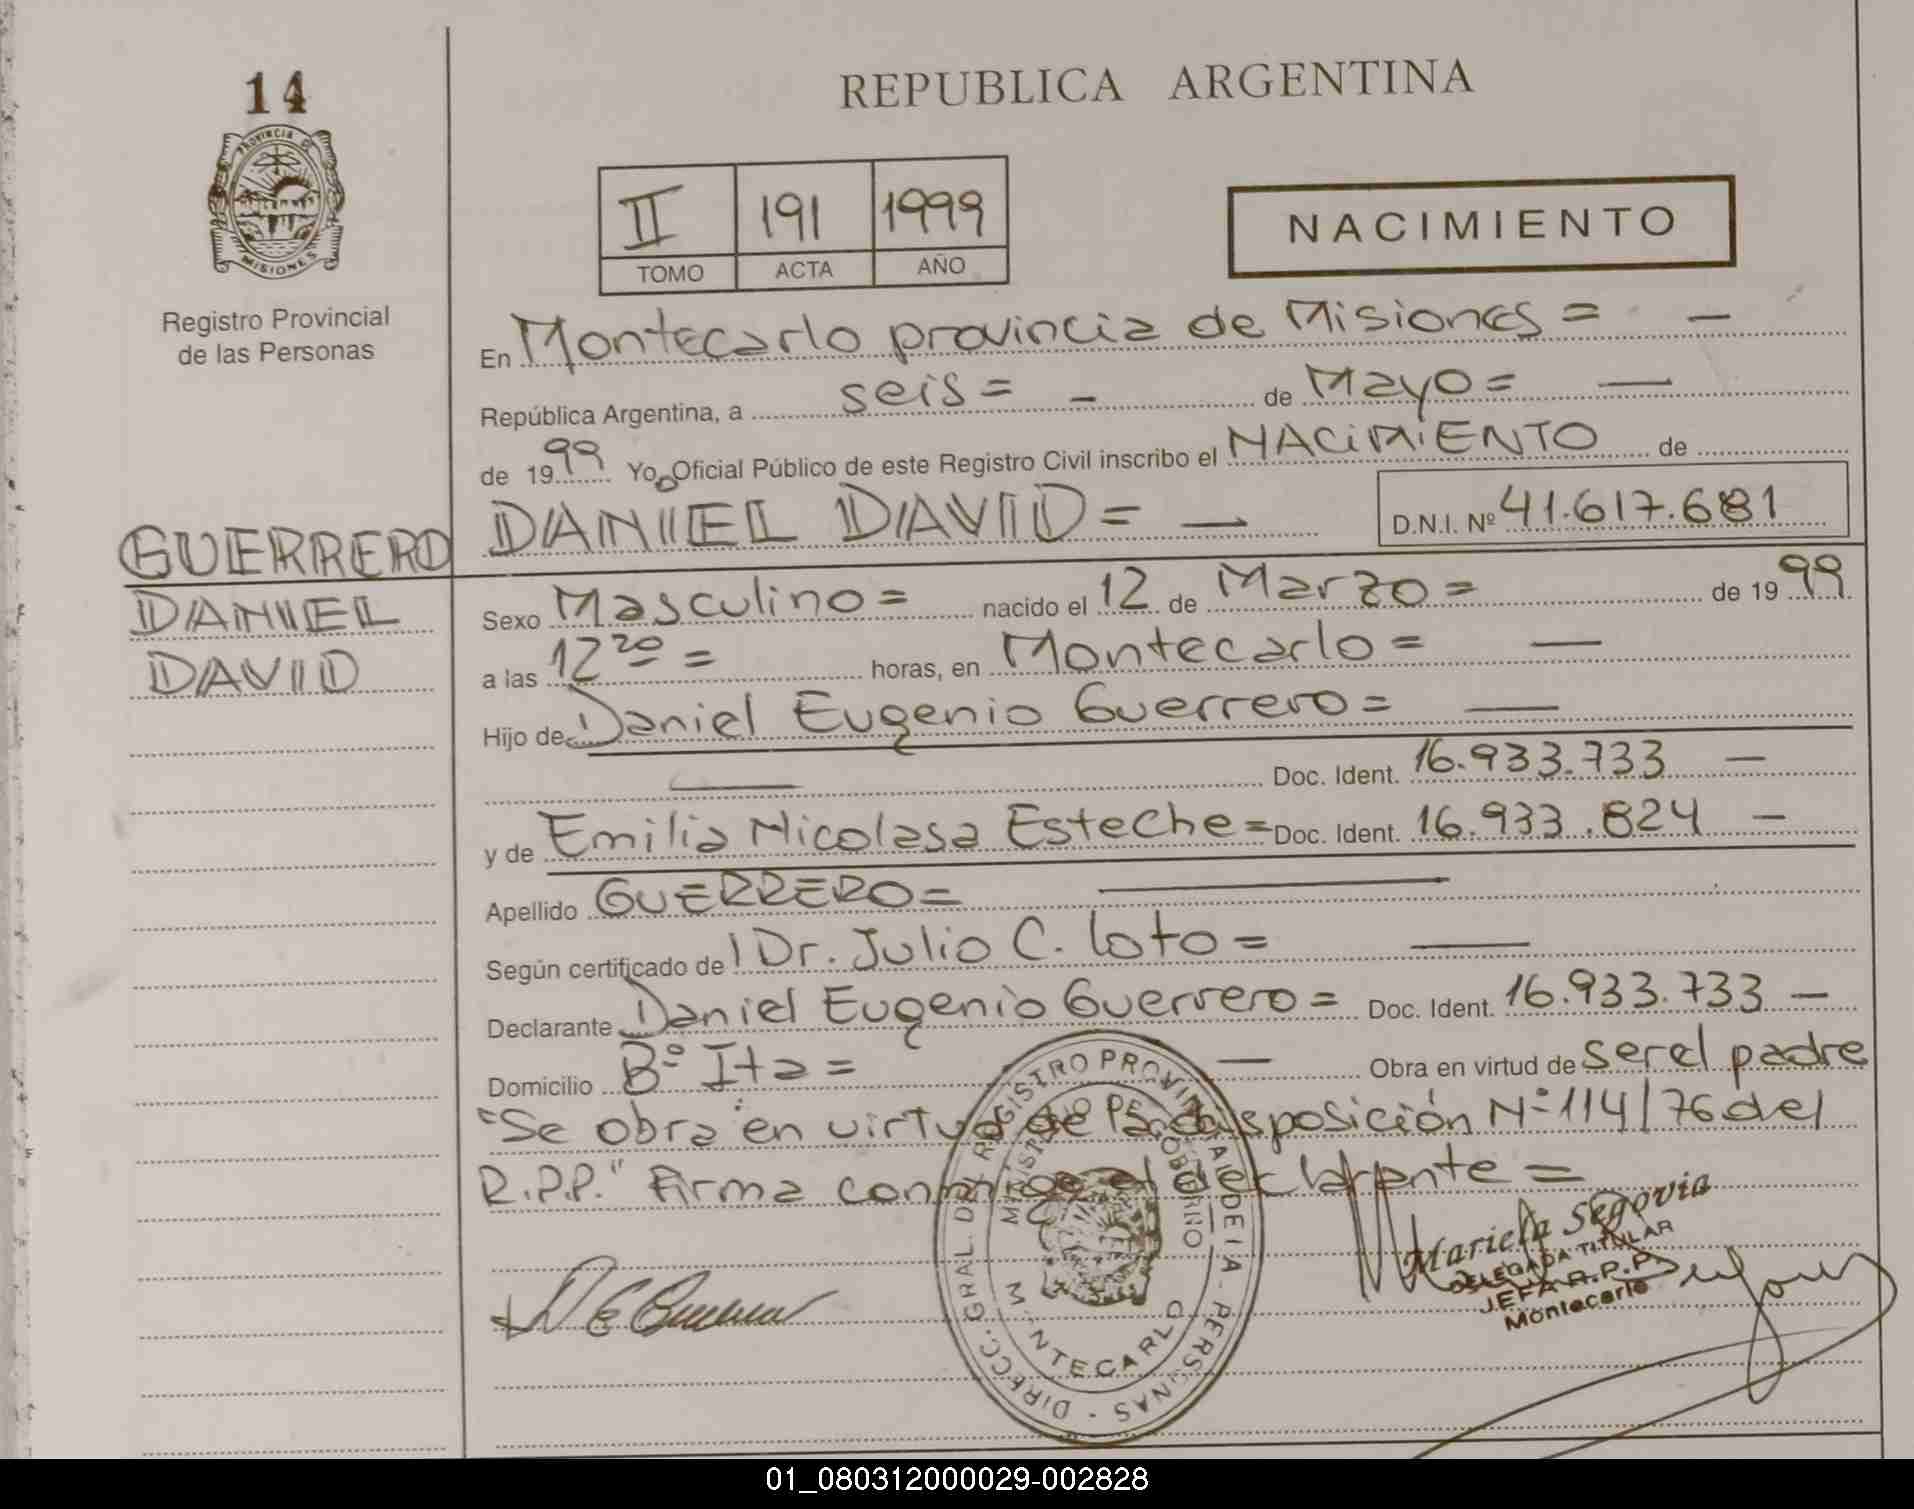 14
PROVINCIA DE
MISIONES
Registro Provincial
de las Personas
GUERRERO
DANIEL
DAVID
REPUBLICA ARGENTINA
II 191 1999
TOMO ACTA AÑO
NACIMIENTO
En Montecarlo provincia de Misiones = —
República Argentina, a seis = — de Mayo = —
de 1999 Yo, Oficial Público de este Registro Civil inscribo el NACIMIENTO de
DANIEL DAVID = — D.N.I. Nº 41.617.681
Sexo Masculino = nacido el 12 de Marzo = de 1999
a las 12 20 = horas, en Montecarlo = —
Hijo de Daniel Eugenio Guerrero = —
— Doc. Ident. 16.933.733 —
y de Emilia Nicolasa Esteche = Doc. Ident. 16.933.824 —
Apellido GUERRERO = —
Según certificado de Dr. Julio C. Loto = —
Declarante Daniel Eugenio Guerrero = Doc. Ident. 16.933.733 —
Domicilio Bº Ita = — Obra en virtud de ser el padre
"Se obra en virtud de la disposición Nº 114/76 del
R.P.P." Firma conmigo el declarante =
DIRECC. GRAL. DEL REGISTRO PROVINCIAL DE LA - PERSONAS -
GOBIERNO
MONTECARLO
D E Guerrero
Mariela Segovia
DELEGADA TITULAR
JEFA R.P.P.
Montecarlo
01_080312000029-002828